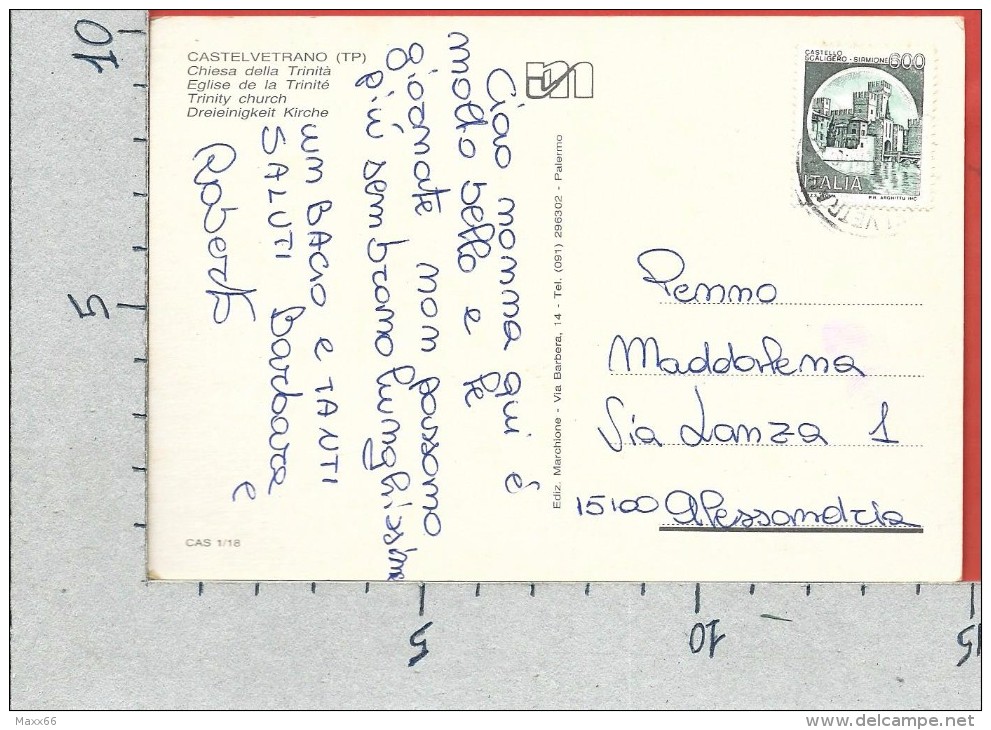 CASTELVETRANO (TP)
Chiesa della Trinità
Eglise de la Trinité
Trinity church
Dreieinigkeit Kirche
CASTELLO
SCALIGERO - SIRMIONE 600
ITALIA
P.R. ARGHITTU INC.
Ciao mamma qui é
molto bello e le
giornate non passano
più sembrano lunghissime
UN BACIO E TANTI
SALUTI Barbara e
Roberto
Ediz. Marchione - Via Barbera, 14 - Tel. (091) 296302 - Palermo
Penno
Maddalena
Via Lanza 1
15100 Alessandria
CAS 1/18
10
5
5
10
15
Maxx66
delcampe.net